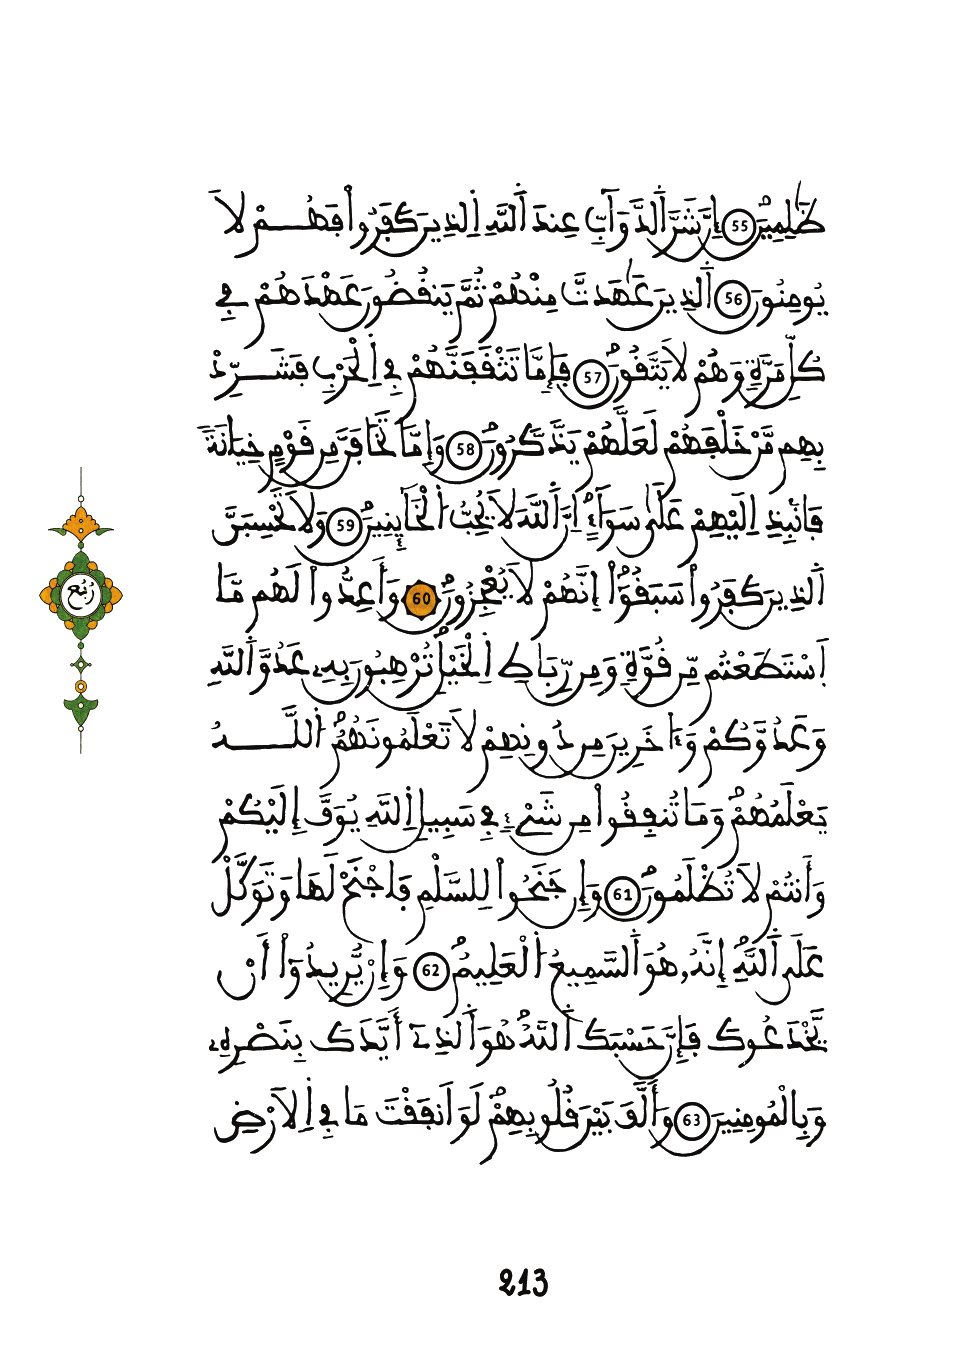 ظَٰلِمِينَ 55 إِنَّ شَرَّ اَ۬لدَّوَآبِّ عِندَ اَ۬للَّهِ اِ۬لذِينَ كَفَرُواْ فَهُمْ لَا
يُومِنُونَ 56 اَ۬لذِينَ عَٰهَدتَّ مِنْهُمْ ثُمَّ يَنقُضُونَ عَهْدَهُمْ فِے
كُلِّ مَرَّةٖ وَهُمْ لَا يَتَّقُونَۖ 57 فَإِمَّا تَثْقَفَنَّهُمْ فِے اِ۬لْحَرْبِ فَشَرِّدْ
بِهِم مَّنْ خَلْفَهُمْ لَعَلَّهُمْ يَذَّكَّرُونَۖ 58 وَإِمَّا تَخَافَنَّ مِن قَوْمٍ خِيَانَةٗ
فَانۢبِذِ اِلَيْهِمْ عَلَىٰ سَوَآءٍۖ اِنَّ اَ۬للَّهَ لَا يُحِبُّ اُ۬لْخَآئِنِينَۖ 59 وَلَا تَحْسِبَنَّ
اَ۬لذِينَ كَفَرُواْ سَبَقُوٓاْۖ إِنَّهُمْ لَا يُعْجِزُونَۖ 60 وَأَعِدُّواْ لَهُم مَّا
اَ۪سْتَطَعْتُم مِّن قُوَّةٖ وَمِن رِّبَاطِ اِ۬لْخَيْلِ تُرْهِبُونَ بِهِۦ عَدُوَّ اَ۬للَّهِ
وَعَدُوَّكُمْ وَءَاخَرِينَ مِن دُونِهِمْ لَا تَعْلَمُونَهُمُۖ اُ۬للَّهُ
يَعْلَمُهُمْۖ وَمَا تُنفِقُواْ مِن شَےْءٖ فِے سَبِيلِ اِ۬للَّهِ يُوَفَّ إِلَيْكُمْ
وَأَنتُمْ لَا تُظْلَمُونَۖ 61 وَإِن جَنَحُواْ لِلسَّلْمِ فَاجْنَحْ لَهَا وَتَوَكَّلْ
عَلَى اَ۬للَّهِۖ إِنَّهُۥ هُوَ اَ۬لسَّمِيعُ اُ۬لْعَلِيمُۖ 62 وَإِنْ يُّرِيدُوٓاْ أَنْ
يَّخْدَعُوكَ فَإِنَّ حَسْبَكَ اَ۬للَّهُۖ هُوَ اَ۬لذِےٓ أَيَّدَكَ بِنَصْرِهِۦ
وَبِالْمُومِنِينَ 63 وَأَلَّفَ بَيْنَ قُلُوبِهِمْۖ لَوَ اَنفَقْتَ مَا فِے اِ۬لَارْضِ
رُبُع
213